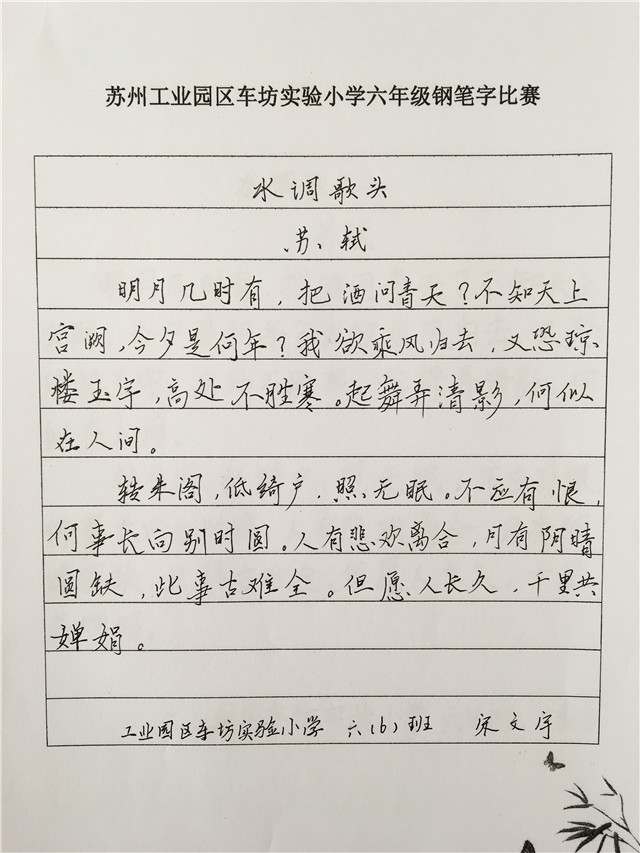 苏州工业园区车坊实验小学六年级钢笔字比赛
水调歌头
苏轼
明月几时有，把酒问青天？不知天上
宫阙，今夕是何年？我欲乘风归去，又恐琼
楼玉宇，高处不胜寒。起舞弄清影，何似
在人间。
转朱阁，低绮户，照无眠。不应有恨，
何事长向别时圆。人有悲欢离合，月有阴晴
圆缺，此事古难全。但愿人长久，千里共
婵娟。
工业园区车坊实验小学 六（6）班 宋文宇